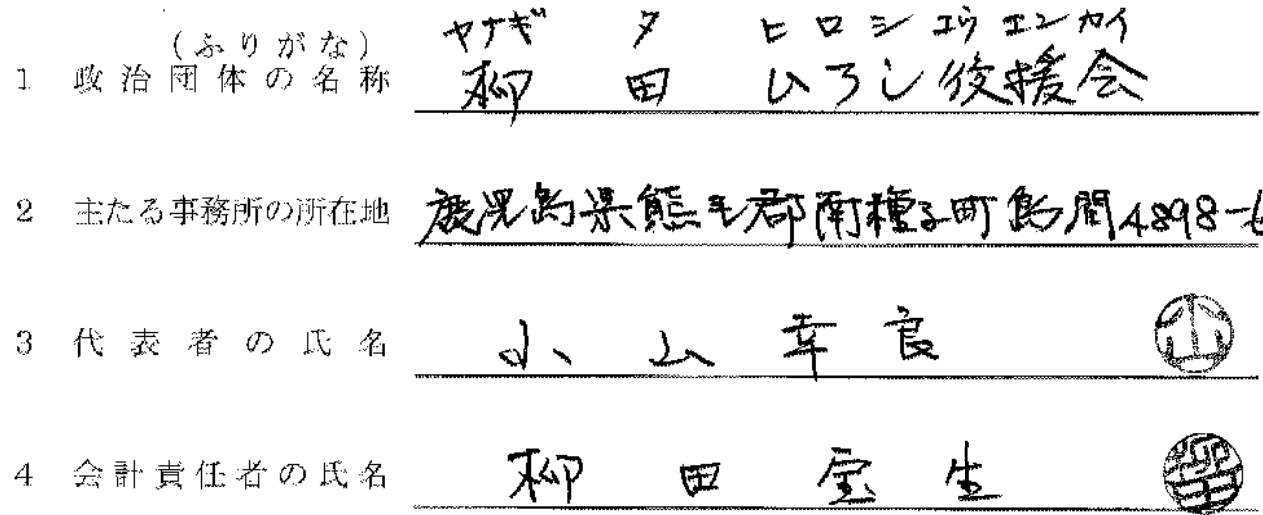 (ふりがな) ヤナギ タ ヒロシ コウ エン カイ
1 政治団体の名称 柳田ひろし後援会
2 主たる事務所の所在地 鹿児島県熊毛郡南種子町島間4898-6
3 代表者の氏名 小山幸良
4 会計責任者の氏名 柳田宝生